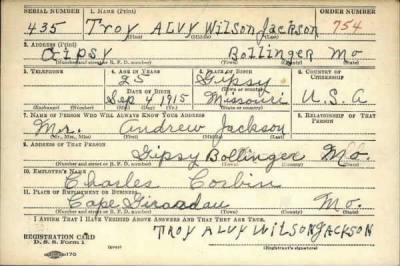 SERIAL NUMBER 1. NAME (Print) ORDER NUMBER
435 Troy Alvy Wilson Jackson 754
(First) (Middle) (Last)
2. ADDRESS (Print)
Gipsy Bollinger Mo
(Number and street or R. F. D. number) (Town) (County) (State)
3. TELEPHONE 4. AGE IN YEARS 5. PLACE OF BIRTH 6. COUNTRY OF CITIZENSHIP
25 Gipsy
DATE OF BIRTH (Town or county)
Sep 1, 1915 Missouri U.S.A
(Exchange) (Number) (Mo.) (Day) (Yr.) (State or country)
7. NAME OF PERSON WHO WILL ALWAYS KNOW YOUR ADDRESS 8. RELATIONSHIP OF THAT PERSON
Mr. Andrew Jackson
(Mr., Mrs., Miss) (First) (Middle) (Last)
9. ADDRESS OF THAT PERSON
Gipsy Bollinger Mo.
(Number and street or R. F. D. number) (Town) (County) (State)
10. EMPLOYER'S NAME
Charles Corbin
11. PLACE OF EMPLOYMENT OR BUSINESS
Cape Girardau Mo.
(Number and street or R. F. D. number) (Town) (County) (State)
I AFFIRM THAT I HAVE VERIFIED ABOVE ANSWERS AND THAT THEY ARE TRUE.
REGISTRATION CARD
D. S. S. Form 1 Troy Alvy Wilson Jackson
(Registrant's signature)